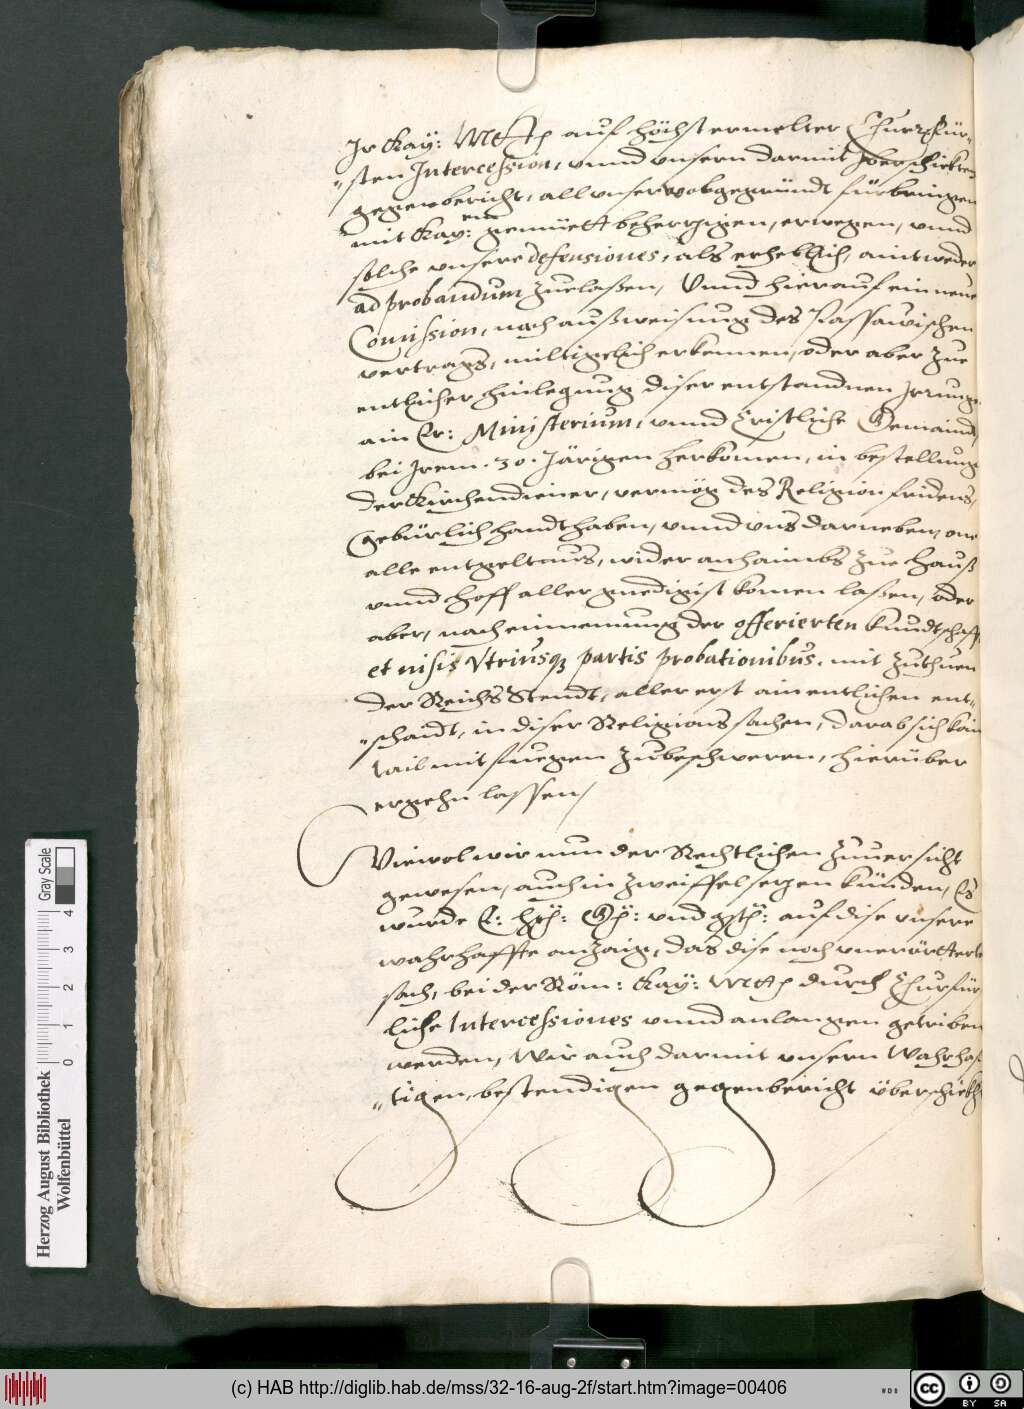 Ir Kay: Mtt auf höchstermelter Churfür-
"sten Intercession, vnnd vnsern darmit vberschickten
gegenbericht, all vnser wolgegründt fürbringen
mit Kay:en gemüett beherzigen, erwegen, vnnd
solche vnsere defensiones, als erheblich, aintweder
ad probandum zuelaßen, Vnnd hierauf ein neue
Comission, nach außweisung des Passawischen
vertrags, miltigelich erkennen, oder aber zue
entlicher hinlegung diser entstandnen Irrung
ain Er: Ministerium, vnnd Cristliche Gemaind,
bei Irem .30. Järigen herkomen, in bestellung
der Kirchendiener, vermög des Religion fridens,
gebürlich handthaben, vnnd vns darneben, one
alle entgeltnus, wider anhaimbs zue hauß
vnnd hoff allergnedigist komen laßen, oder
aber, nach einnemung der offerierten kundtschafft
et nisis vtriusq partis probationibus, mit Zuthuen
der Reichs Stendt, aller erst ain entlichen ent-
"schaidt, in diser Religions sachen, darab sich kain
tail mit fuegen Zubeschweren, hierüber
ergehn lassen/
Wiewol wir nun der Rechtlichen Zuuersicht
gewesen, auch in Zweiffel setzen künden, Es
wurde E: hh: Gh: vnd gsth: auf dise vnsere
wahrhaffte anzaig, das dise noch vnerörtterte
sach, bei der Röm: Kay: Mtt durch Churfür
liche Intercessiones vnnd anlangen getriben
werden, Wir auch darmit vnsern Wahrhaf
"tigen, bestendigen gegenbericht überschickh
Herzog August Bibliothek
Wolfenbüttel
0 1 2 3 4 Gray Scale
(c) HAB http://diglib.hab.de/mss/32-16-aug-2f/start.htm?image=00406
WDB
cc BY SA